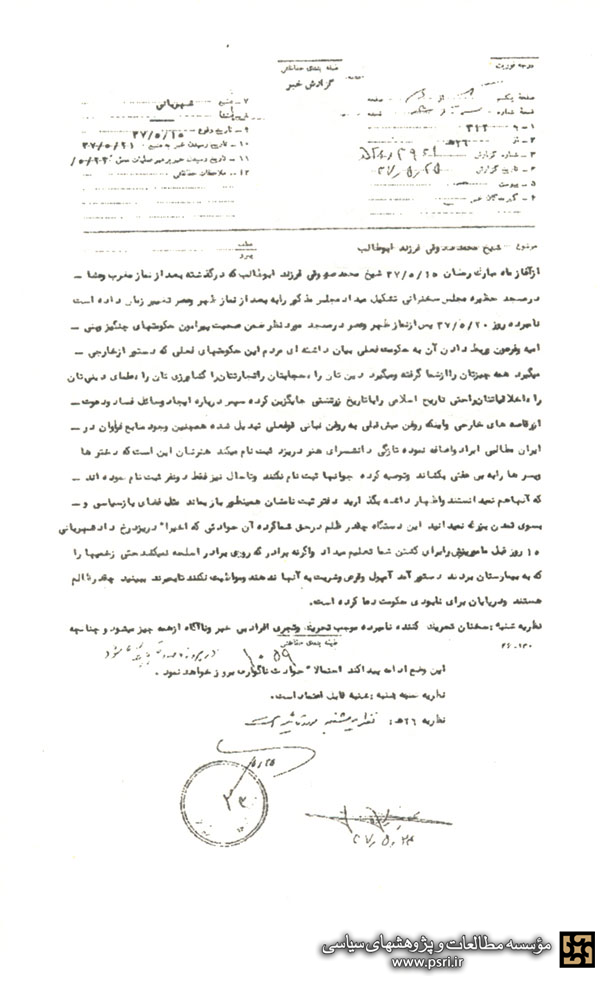 درجه فوریت
طبقه بندی حفاظتی
گزارش خبر
۷ - منبع شهربانی
۹ - تاریخ وقوع ۳۷/۵/۱۵
۱۰ - تاریخ رسیدن خبر به منبع ۳۷/۵/۲۱
۱۲ - ملاحظات حفاظتی
۱ - به ۳۱۲
۲ - از ۲۶ه
۳ - شماره گزارش
۴ - تاریخ گزارش ۳۷/۵/۲۵
۵ - پیوست
موضوع : شیخ محمد صدوقی فرزند ابوطالب
ازآغاز ماه مبارک رمضان ۳۷/۵/۱۵ شیخ محمد صدوقی فرزند ابوطالب که درگذشته بعد از نماز مغرب وعشا -
درمسجد حظیره مجلس سخنرانی تشکیل میداد مجلس مذکور رابه بعد از نماز ظهر وعصر تغییر زمان داده است
نامبرده روز ۳۷/۵/۲۰ پس ازنماز ظهر وعصر درمسجد مورد نظر ضمن صحبت پیرامون حکومتهای چنگیز وبنی -
امیه وفرعون وربط دادن آن به حکومت فعلی بیان داشته ای مردم این حکومتهای فعلی که دستور ازخارجی -
میگیرد همه چیزتان راازشما گرفته ومیگیرد دین تان را ، حجابتان راتجارتتان را کشاورزی تان را ، علمای دینی تان
را ، اخلاقیاتتان راحتی تاریخ اسلامی راباتاریخ زرتشتی جایگزین کرده سپس درباره ایجاد وسائل فساد ودعوت -
ازرقاصه های خارجی واینکه روغن میش قبلی به روغن نباتی فعلی تبدیل شده همچنین وجود منابع فراوان در -
ایران مطالبی ایراد واضافه نموده تازگی دانشسرای هنر دریزد ثبت نام میکند هنرشان این است که دختر ها
وپسر ها رابه بی عفتی بکشاند وتوصیه کرده جوانها ثبت نام نکنند وتاحال نیز فقط دونفر ثبت نام نموده اند -
که آنهاهم نمیدانستند واظهار داشته بگذارید دفتر ثبت نامشان همینطور باز بماند مثل فضای باز سیاسی و -
بسوی تمدن بزرگ نمیدانید این دستگاه چقدر ظلم درحق شماکرده آن حوادثی که اخیرا" دریزد رخ داد شهربانی
۱۵ روز قبل مامورینش رابرای کشتن شما تعلیم میداد واگرنه برادر که روی برادر اسلحه نمیکشد حتی زخمیها را
که به بیمارستان بردند دستور آمد آمپول وقرص وشربت به آنها ندهند ومداوایت نکنند تابمیرند ببینید چقدر ظالم
هستند ودرپایان برای نابودی حکومت دعا کرده است.
نظریه شنبه : سخنان تحریک کننده نامبرده موجب تحریک وتجری افراد بی خبر وناآگاه ازهمه چیز میشود و چنانچه
طبقه بندی حفاظتی
۲۶-۱۳۰
این وضع ادامه پیدا کند احتمالا" حوادث ناگواری بروز خواهد نمود .
نظریه سه شنبه : شنبه قابل اعتماد است.
نظریه ۲۶ه :
۵/۲۵
۳۷/۵/۲۴
مؤسسه مطالعات و پژوهشهای سیاسی
www.psri.ir